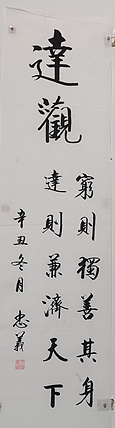 達觀
窮則獨善其身
達則兼濟天下
辛丑冬月 忠義